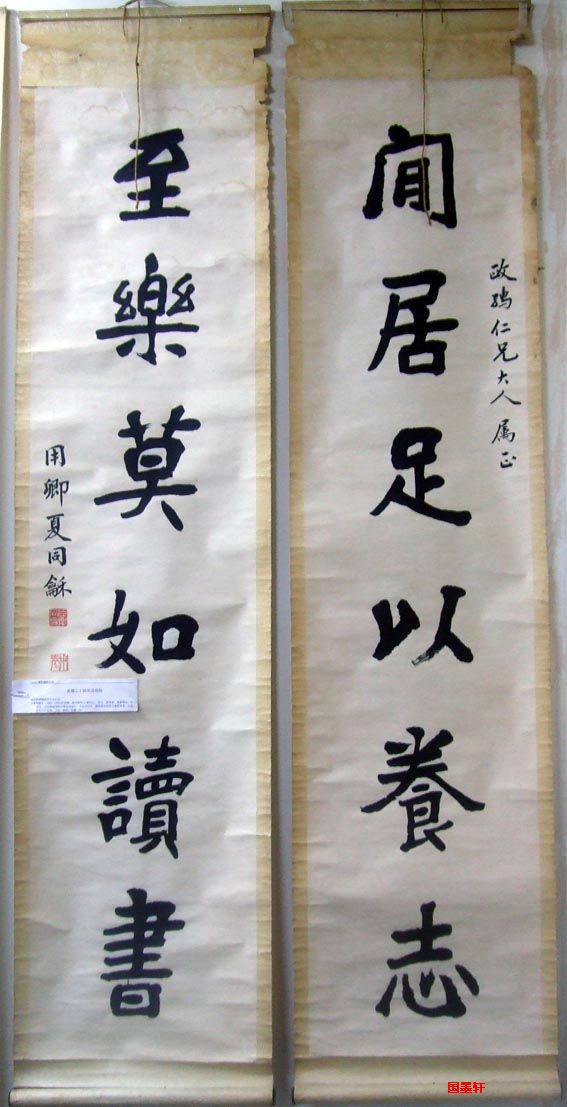 閒居足以養志
至樂莫如讀書
仁兄大人属正
用卿夏同龢
国墨轩